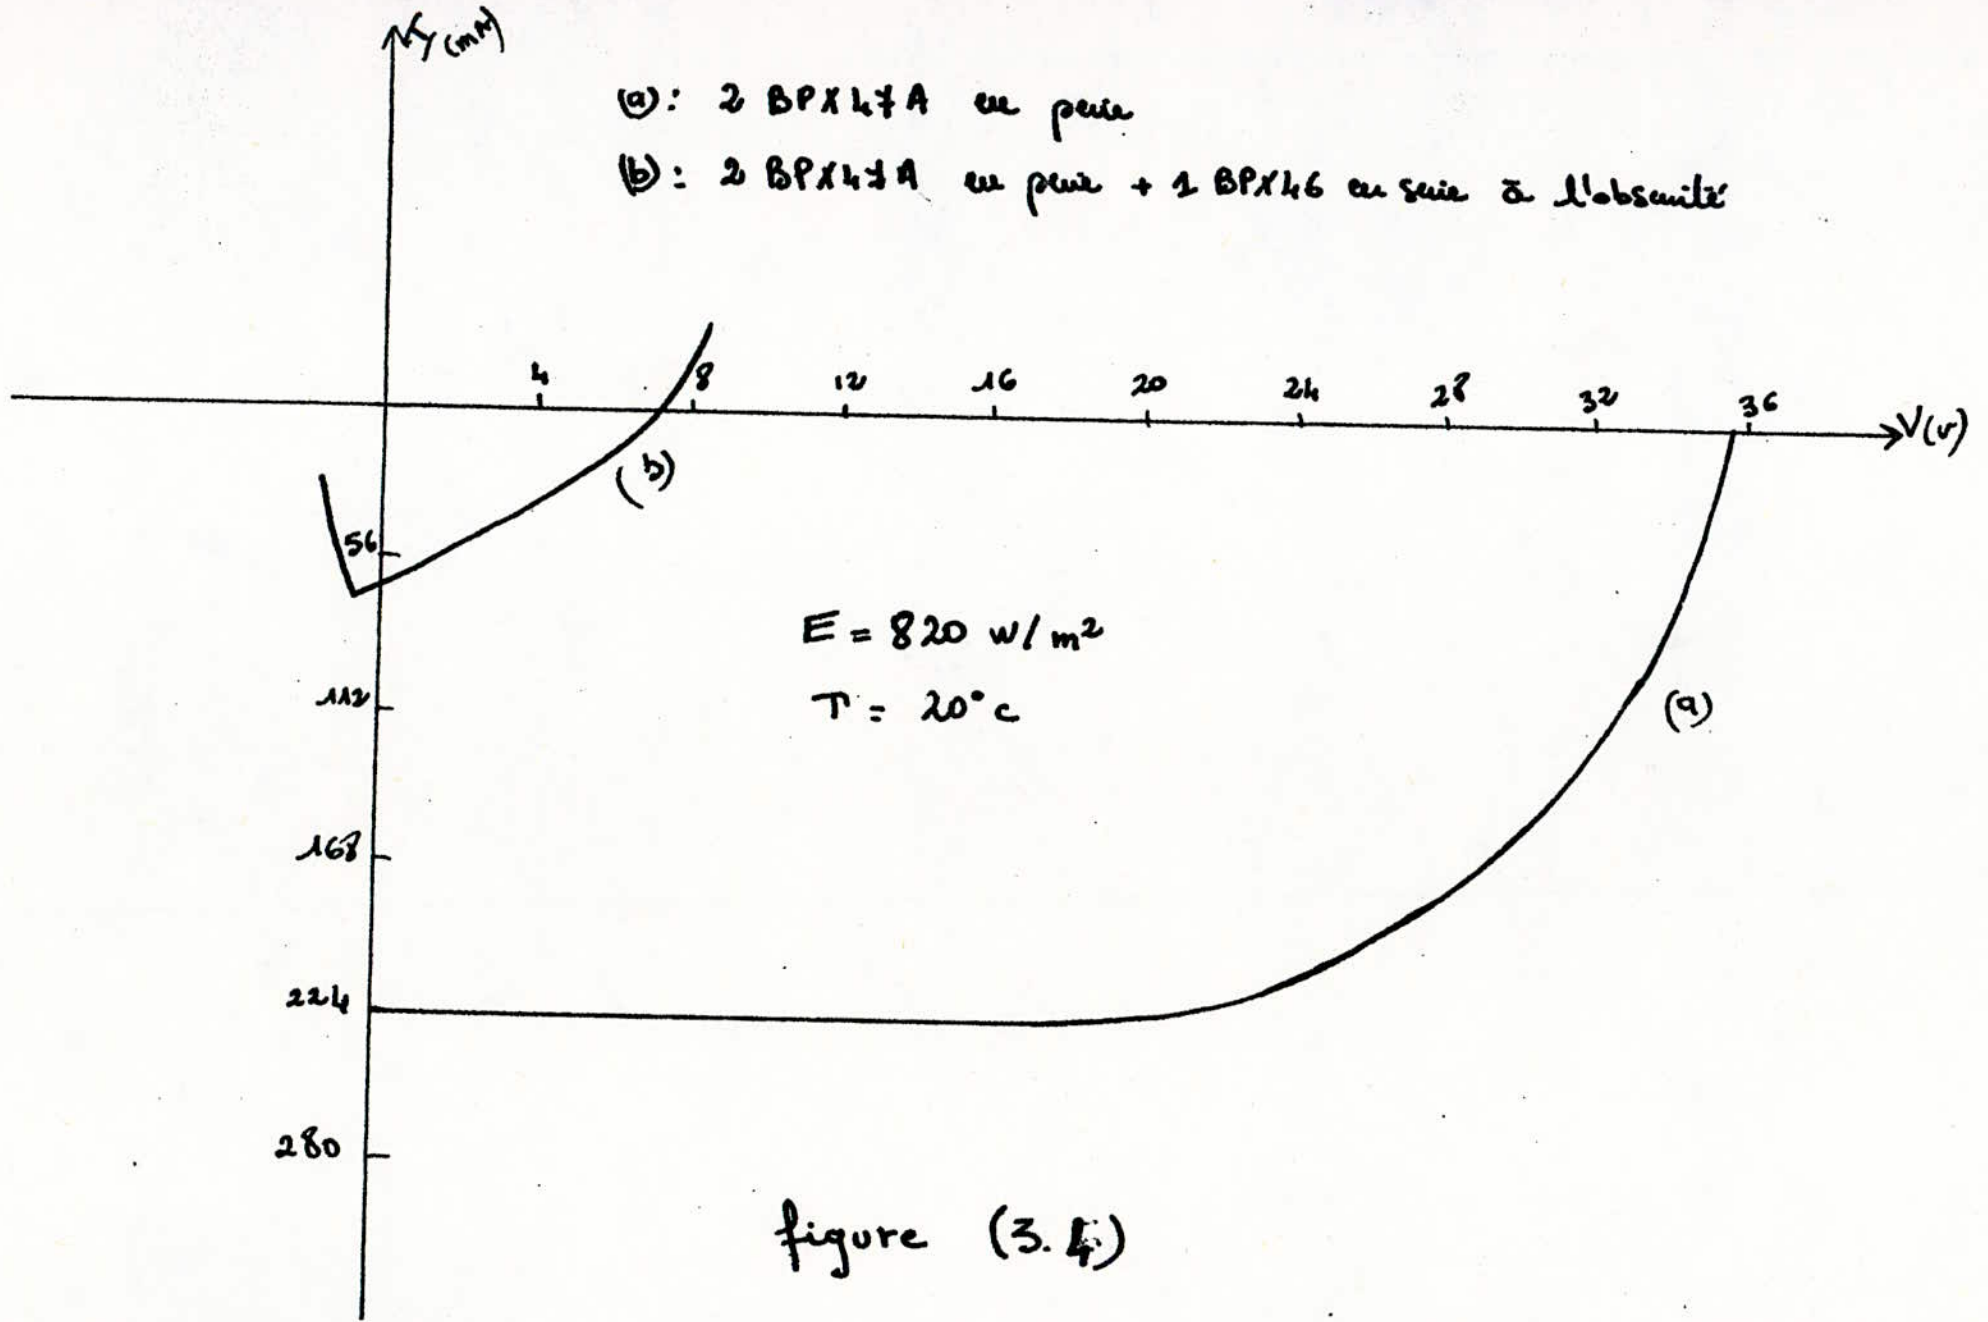 (mA)
(a): 2 BPX47A en serie
(b): 2 BPX47A en serie + 1 BPX46 en serie à l'obscurité
4 8 12 16 20 24 28 32 36
V(v)
(b)
56
E = 820 w/m²
112
T = 20°c
(a)
168
224
280
figure (3.4)